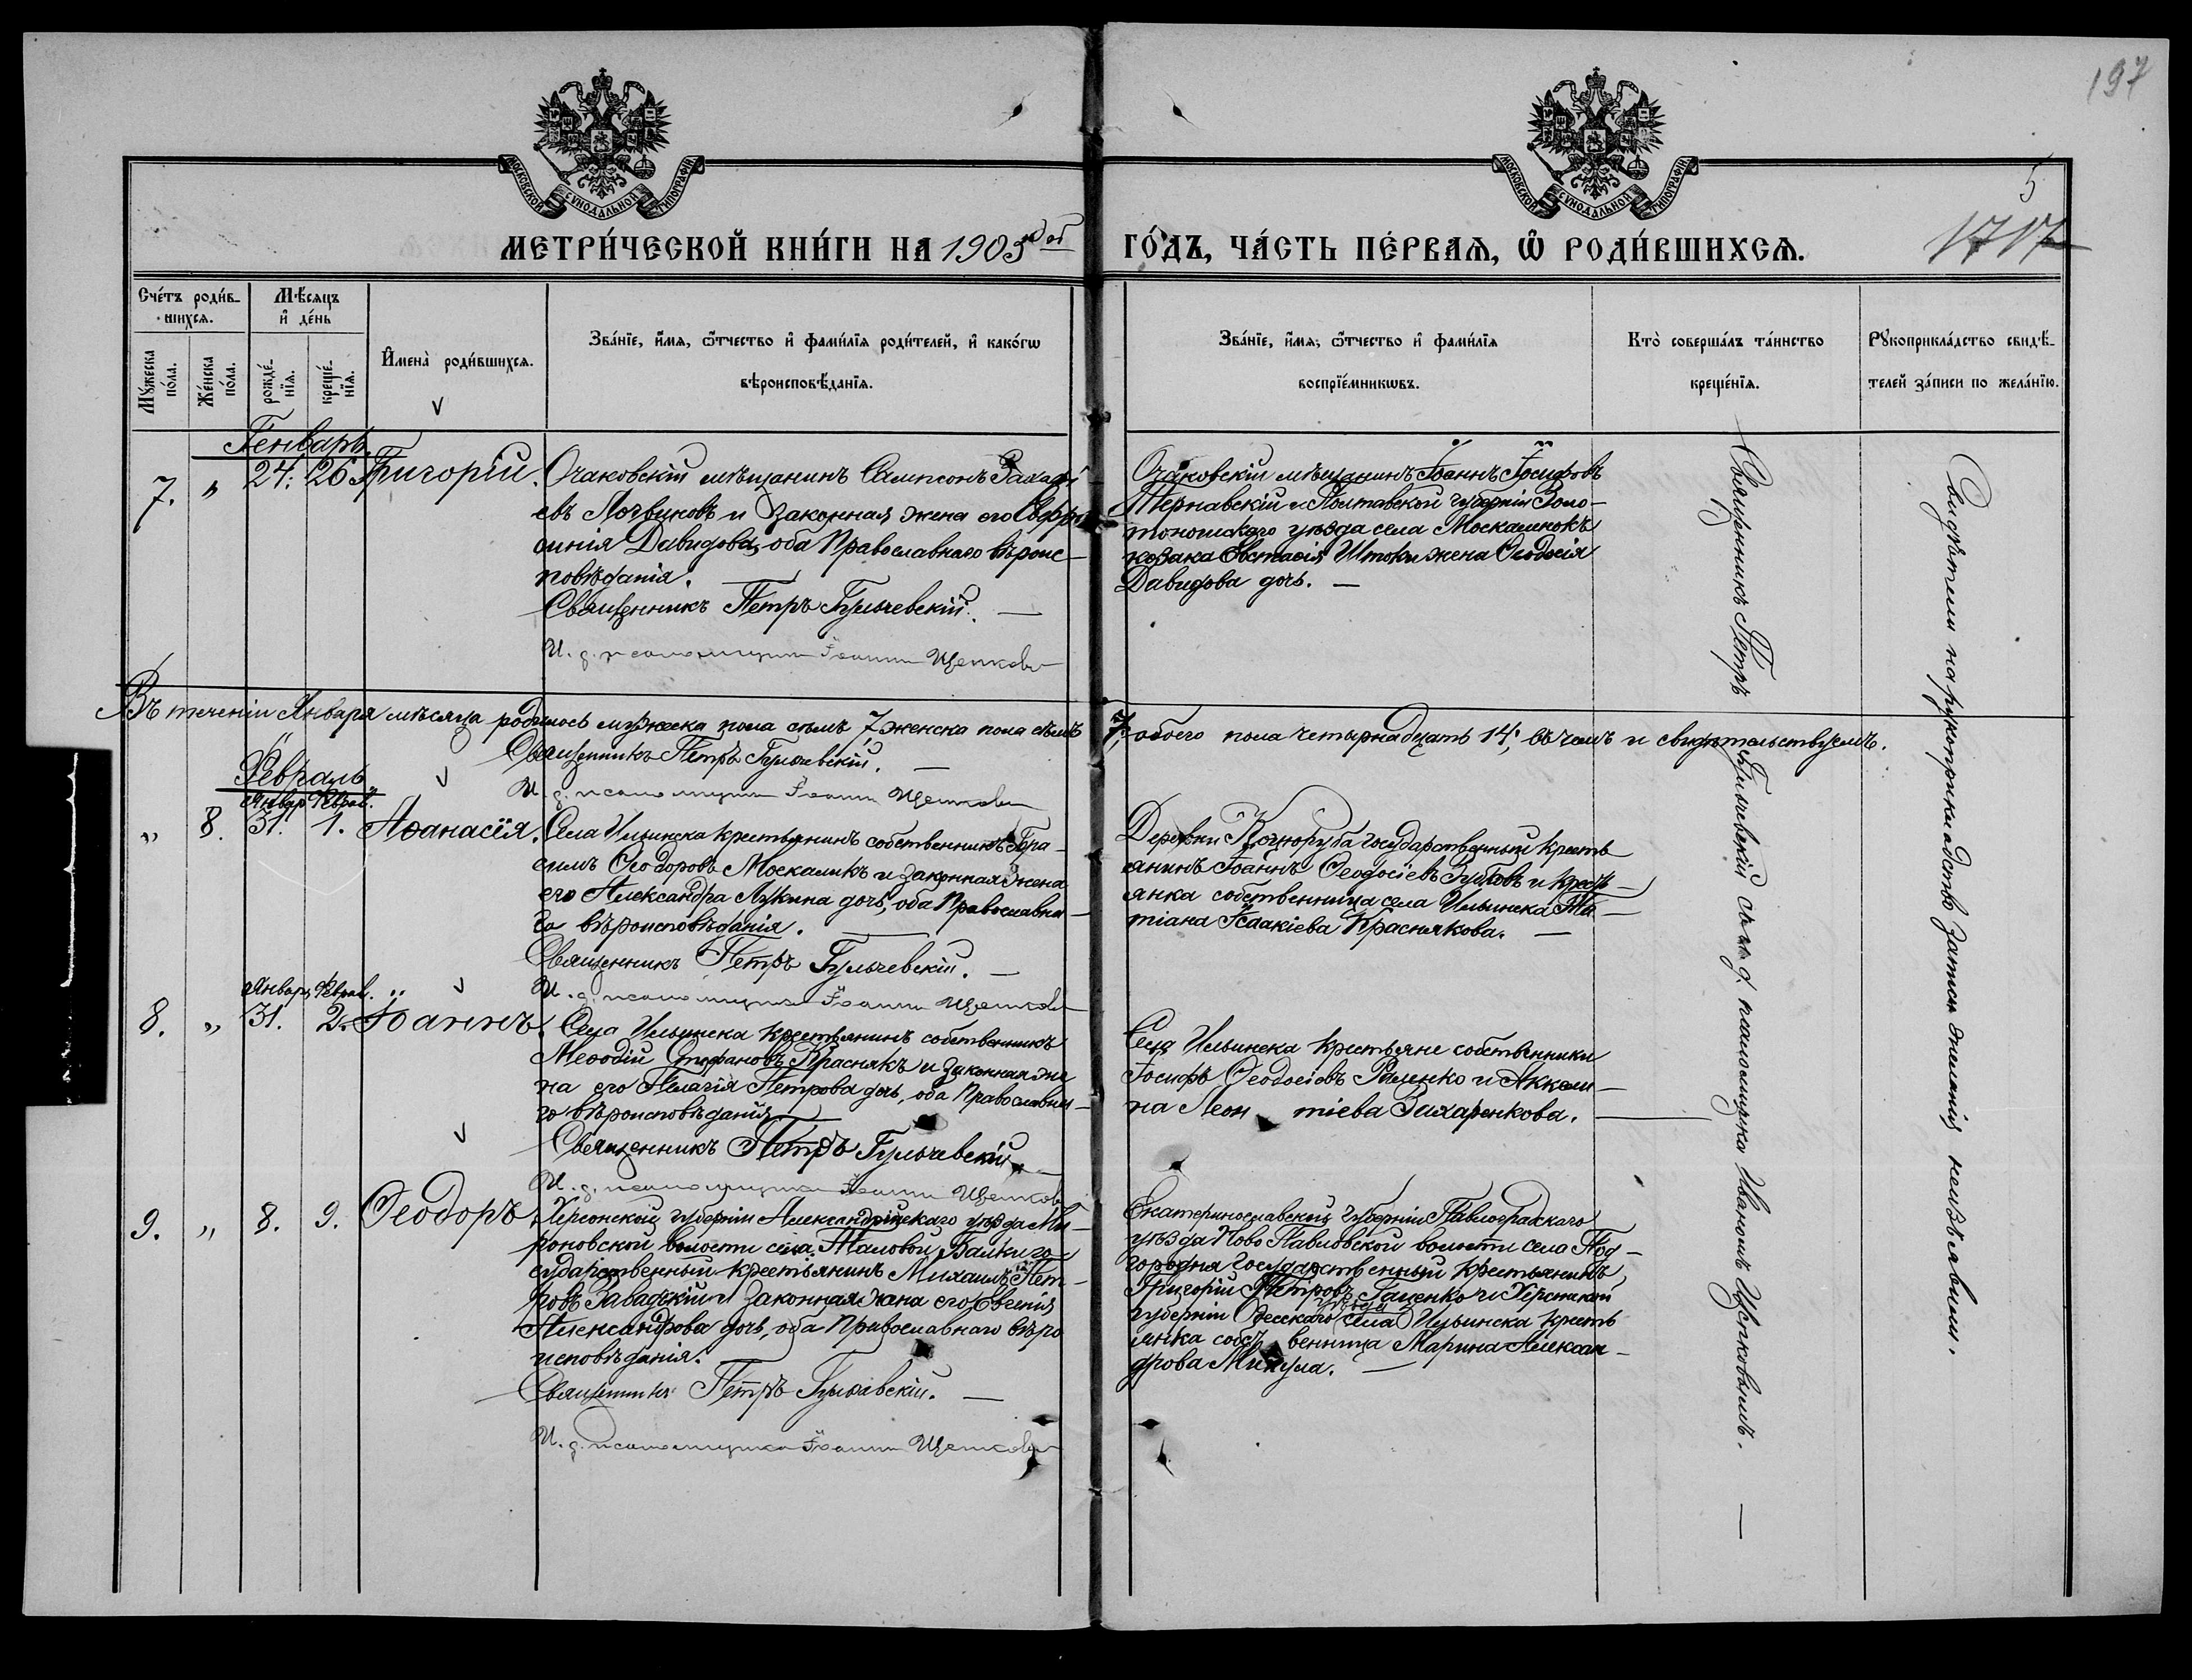 197
5
1717
МОСКОВСКОЙ СѴНОДАЛЬНОЙ ТИПОГРАФІИ
МОСКОВСКОЙ СѴНОДАЛЬНОЙ ТИПОГРАФІИ
МЕТРИ́ЧЕСКОЙ КНИ́ГИ НА 1905
ГО́ДЪ, ЧА́СТЬ ПЕ́РВАѦ, Ѡ҆ РОДИ́ВШИХСѦ.
Сче́тъ роди́в-
шихсѧ.
Мѣ́сѧцъ
и҆ де́нь
Мꙋ́жеска
по́ла.
Же́нска
по́ла.
рожде́-
нїѧ.
креще́-
нїѧ.
И҆мена̀ роди́вшихсѧ.
Зва́нїе, и҆́мѧ, ѻ҆́тчество и҆ фами́лїѧ роди́телей, и҆ како́гѡ
вѣроисповѣ́данїѧ.
Зва́нїе, и҆́мѧ, ѻ҆́тчество и҆ фами́лїѧ
воспрїе́мникѡвъ.
Кто̀ соверша́лъ та́инство
креще́нїѧ.
Рꙋкоприкла́дство свидѣ́-
телей за́писи по жела́нїю.
Генварь.
7. „ 24. 26 Григорій.
Очаковскій мѣщанинъ Сампсонъ Захарі
евъ Логвиновъ и законная жена его Евфро
синія Давидова, оба Православнаго вѣроис
повѣданія.
Священникъ Петръ Гульчевскій.
И. д. псаломщика Іоаннъ Щепковъ
Очаковскій мѣщанинъ Іоаннъ Іосифовъ
Тернавскій и Полтавской губерніи Золо-
тоношскаго уѣзда села Москаленокъ
козака Евстафія Штоки жена Ѳеодосія
Давидова дочь.
Въ теченіи Января мѣсяца родилось мужеска пола семь 7 женска пола семь
7, обоего пола четырнадцать 14; въ чемъ и свидѣтельствуемъ.
Священникъ Петръ Гульчевскій.
И. д. псаломщика Іоаннъ Щепковъ
Февраль
Январ. Феврал.
„ 8. 31. 1. Аѳанасія.
Села Ильинска крестьянинъ собственникъ Гера-
симъ Ѳеодоровъ Москаликъ и законная жена
его Александра Лукина дочь, оба Православна-
го вѣроисповѣданія.
Священникъ Петръ Гульчевскій.
И. д. псаломщика Іоаннъ Щепковъ
Деревни Кочноруба государственный кресть
янинъ Іоаннъ Ѳеодосіевъ Зубовъ и кресть-
янка собственница села Ильинска Та-
тіана Ісаакіева Краснякова.
Январ. Феврал.
8. „ 31. 2. Іоаннъ.
Села Ильинска крестьянинъ собственникъ
Меѳодій Стефановъ Краснякъ и законная же
на его Пелагія Петрова дочь, оба Православна-
го вѣроисповѣданія.
Священникъ Петръ Гульчевскій.
И. д. псаломщика Іоаннъ Щепковъ
Села Ильинска крестьяне собственники
Іосифъ Ѳеодосіовъ Раценко и Аккили-
на Леон тіева Захаренкова.
9. „ 8. 9. Ѳеодоръ.
Херсонской губерніи Александрійскаго уѣзда Ми-
роновской волости села Маловой Балки го
сударственный крестьянинъ Михаилъ Пет-
ровъ Завадскій и законная жена его Евгенія
Александрова дочь, оба Православнаго вѣро
исповѣданія.
Священникъ Петръ Гульчевскій.
И. д. псаломщика Іоаннъ Щепковъ
Екатеринославской губерніи Павлоградскаго
уѣзда Ново Павловской волости села Под-
городня государственный крестьянинъ
Григорій Петровъ Гаценко и Херсонской
губерніи Одесскаго уѣзда села Ильинска кресть
янка собст венница Марина Алексан-
дрова Микула.
Священникъ Петръ Гульчевскій съ и. д. псаломщика Иваномъ Щепковымъ.
Свидѣтели на рукоприкладство записи желанія неизъявили.